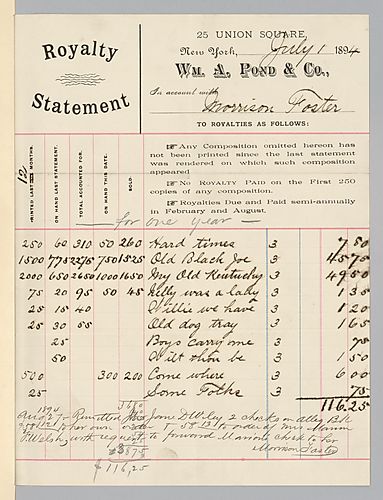 Royalty
Statement
25 UNION SQUARE,
New York, July 1 1894
WM. A. POND & CO.,
In account with
Morrison Foster
TO ROYALTIES AS FOLLOWS:
PRINTED LAST 12 MONTHS.
ON HAND LAST STATEMENT.
TOTAL ACCOUNTED FOR.
ON HAND THIS DATE.
SOLD.
☞ Any Composition omitted hereon has
not been printed since the last statement
was rendered on which such composition
appeared
☞ No ROYALTY PAID on the First 250
copies of any composition.
☞ Royalties Due and Paid semi-annually
in February and August.
for one year
250 60 310 50 260 Hard times 3 7 80
1500 775 2275 750 1525 Old Black Joe 3 45 75
2000 650 2650 1000 1650 My Old Kentucky 3 49 50
75 20 95 50 45 Nelly was a lady 3 1 35
25 15 40 Willie we have 3 1 20
25 30 55 Old dog tray 3 1 65
25 Boys carry me 3 75
50 Wilt thou be 3 1 50
500 300 200 Come where 3 6 00
25 Some Folks 3 75
116.25
1894
Remitted Jane D Wiley 2 checks on
to her own order & 58.13 to order of Mrs Marion
Welsh, with request to forward Marion's check to her
Morrison Foster
$116,25